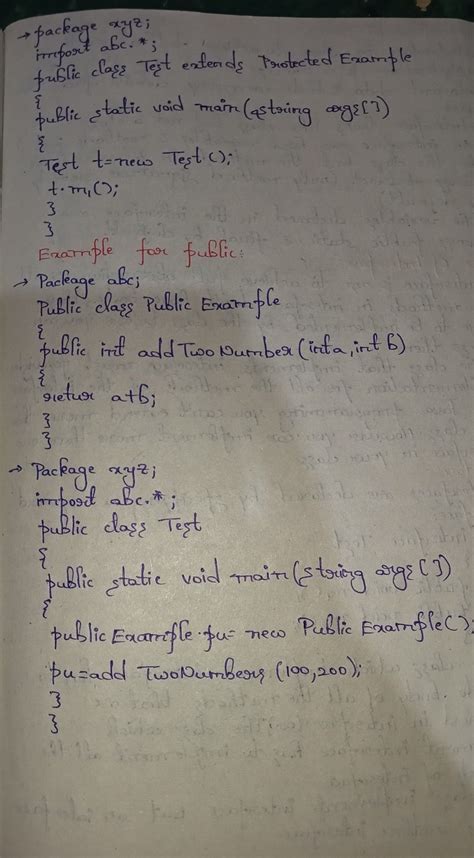 → package xyz;
import abc.*;
public class Test extends Protected Example
{
public static void main(string args[])
{
Test t=new Test();
t.m1();
}
}
Example for public:
→ Package abc;
Public class Public Example
{
public int addTwoNumber(int a, int b)
{
retur a+b;
}
}
→ Package xyz;
import abc.*;
public class Test
{
public static void main(string args[])
{
publicExample pu= new Public Example();
pu=add TwoNumbers (100,200);
}
}